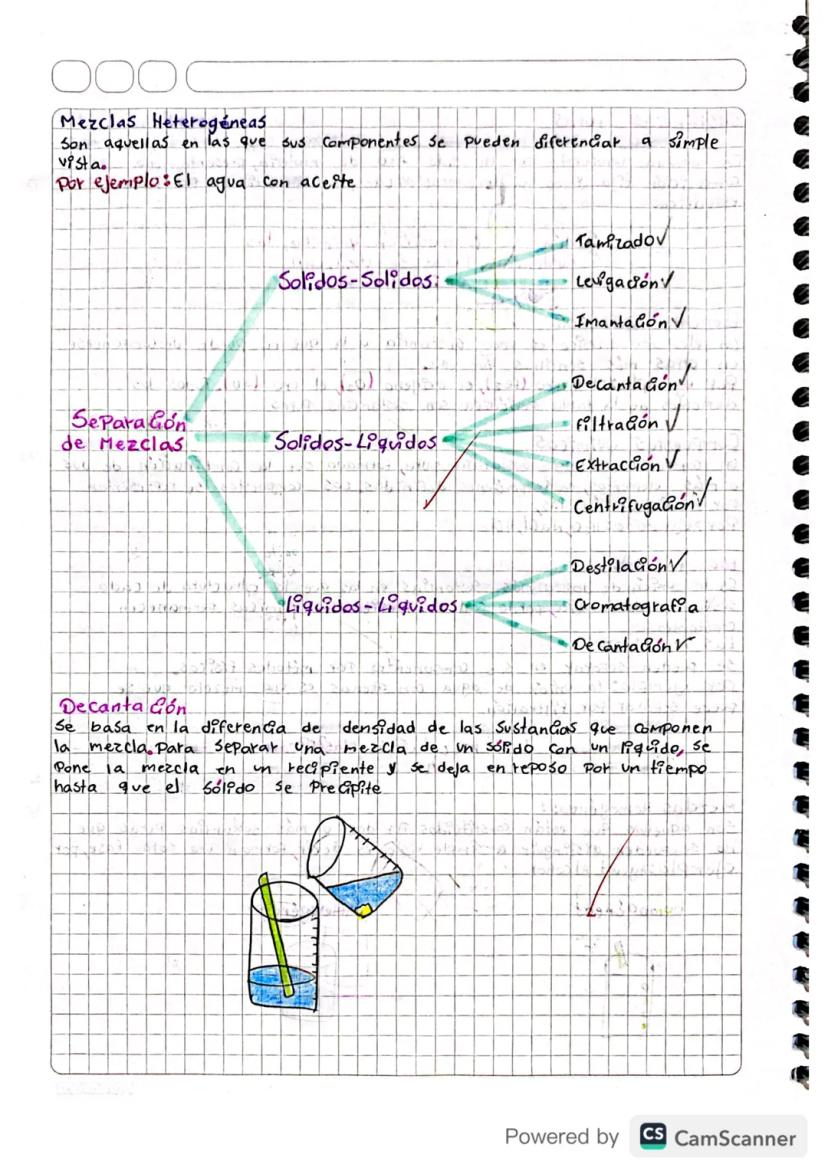 Mezclas Heterogéneas
Son aquellas en las que sus componentes se pueden diferenciar a simple
vista.
Por ejemplo: El agua con aceite
Tamizado ✓
Solidos-Solidos:
Levigación ✓
Imantación ✓
Decantación ✓
Separación
de Mezclas
Solidos-Liquidos
Filtración ✓
Extracción ✓
Centrifugación ✓
Destilación ✓
Liquidos-Liquidos
Cromatografia
Decantación ✓
Decantación
Se basa en la diferencia de densidad de las sustancias que componen
la mezcla. Para separar una mezcla de un sólido con un líquido, se
Pone la mezcla en un recipiente y se deja en reposo por un tiempo
hasta que el sólido se Precipite
Powered by CS CamScanner